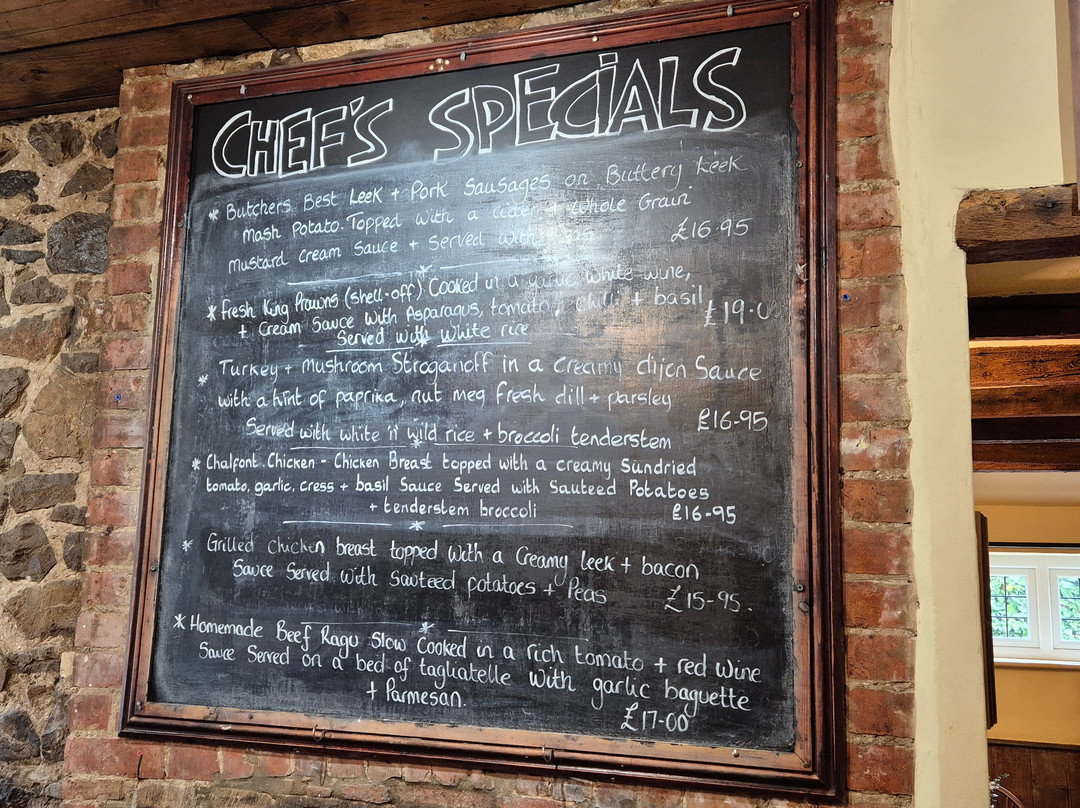 CHEF'S SPECIALS
* Butchers Best Leek + Pork Sausages on Buttery Leek
Mash Potato. Topped with a cider + Whole Grain
Mustard Cream Sauce + Served with £16.95
* Fresh King Prawns (shell-off) Cooked in a garlic white wine,
+ Cream Sauce with Asparagus, tomato, chilli + basil £19.0
Served with white rice
* Turkey + mushroom Stroganoff in a creamy dijon Sauce
with a hint of paprika, nut meg fresh dill + parsley
£16-95
Served with white 'n' wild rice + broccoli tenderstem
* Chalfont Chicken - Chicken Breast topped with a creamy Sundried
tomato, garlic, cress + basil Sauce Served with Sauteed Potatoes
+ tenderstem broccoli £16-95
* Grilled chicken breast topped with a Creamy leek + bacon
Sauce Served with sauteed potatoes + Peas £15-95.
* Homemade Beef Ragu Slow Cooked in a rich tomato + red wine
Sauce Served on a bed of tagliatelle with garlic baguette
+ Parmesan.
£17-00